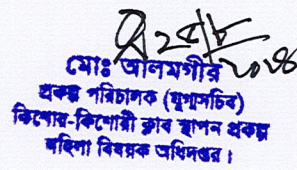 ২৫/৮/২০২৪
মোঃ আলমগীর
প্রকল্প পরিচালক (যুগ্মসচিব)
কিশোর-কিশোরী ক্লাব স্থাপন প্রকল্প
মহিলা বিষয়ক অধিদপ্তর।